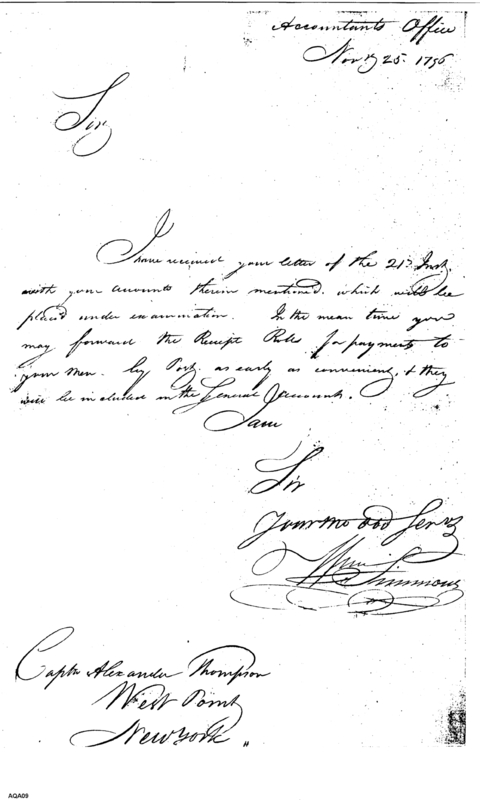 Accountants Office
Novr 25. 1796
Sir
I have received your letter of the 21st Inst.
with your accounts therein mentioned. which will be
placed under examination. In the mean time you
may forward the Receipt Rolls for payments to
your men. by Post, as early as convenient, & they
will be included in the General Account.
I am
Sir
Your mo Obd Servt
Wm Simmons
Captn Alexander Thompson
West Point
New York "
AQA09